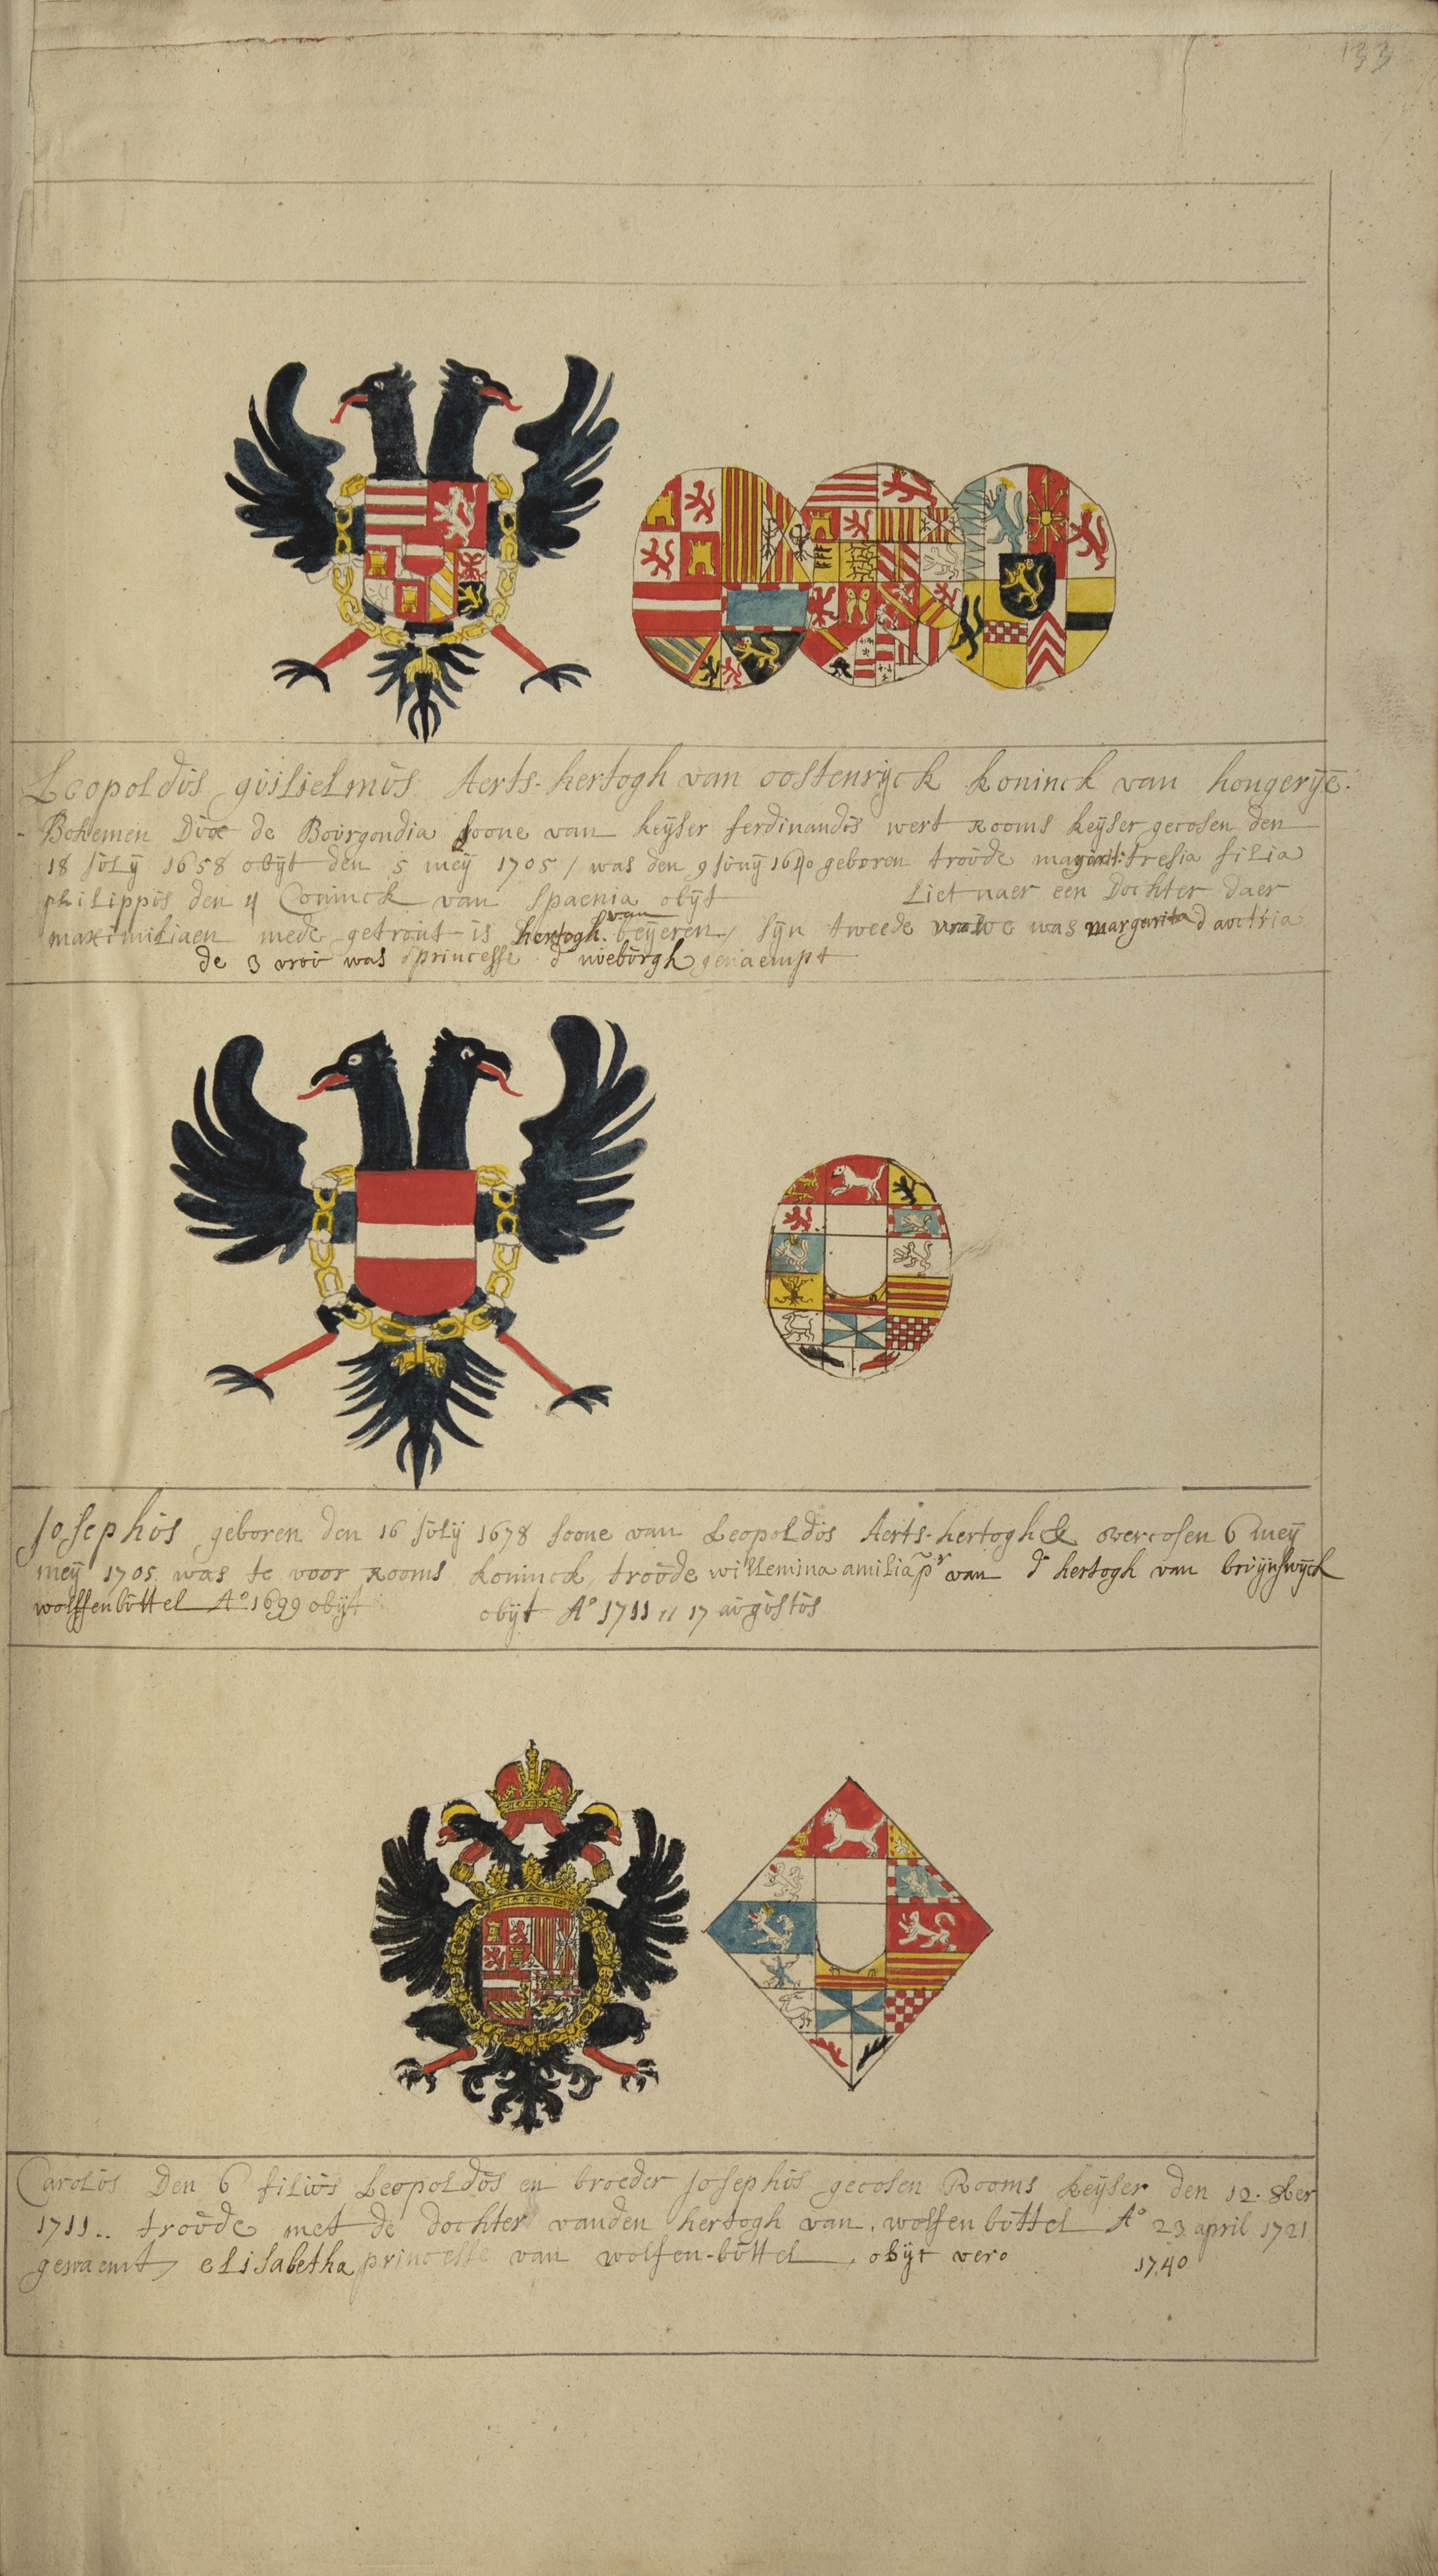 133
Leopoldùs gùilielmùs Aerts-hertogh van oostenrijck koninck van hongerije:
Bohemen Dùx de Boùrgondia soone van keijser ferdinandùs wert Rooms keijser gecosen den
18 jùlij 1658 obijt den 5 meij 1705 / was den 9 jùnij 1640 geboren troùde tresia filia
philippùs den 4 Coninck van Spaenia obijt Liet naer een Dochter daer
maximiliaen mede getroùt is hertogh van beijeren / sijn tweede was margarita d aùctria
de 3 vroù was princesse d nieùbùrgh genaempt
Josephùs geboren den 16 jùlij 1678 soone van Leopoldùs Aerts-hertogh & vercosen 6 meij
meij 1705 was te voor Rooms koninck, troùde willemina amilia van d' hertogh van brùijnswijck
wolffenbùttel A° 1699 obijt obijt A° 1711 17 aùgùstùs
Carolùs Den 6 filiùs Leopoldùs en broeder Josephùs gecosen Rooms keijser den 12. 8ber
1711.. troùde met de dochter vanden hertogh van. wolfenbùttel A° 23 april 1721
genaemt, elisabetha princesse van wolfen-bùttel, obijt vero 1740